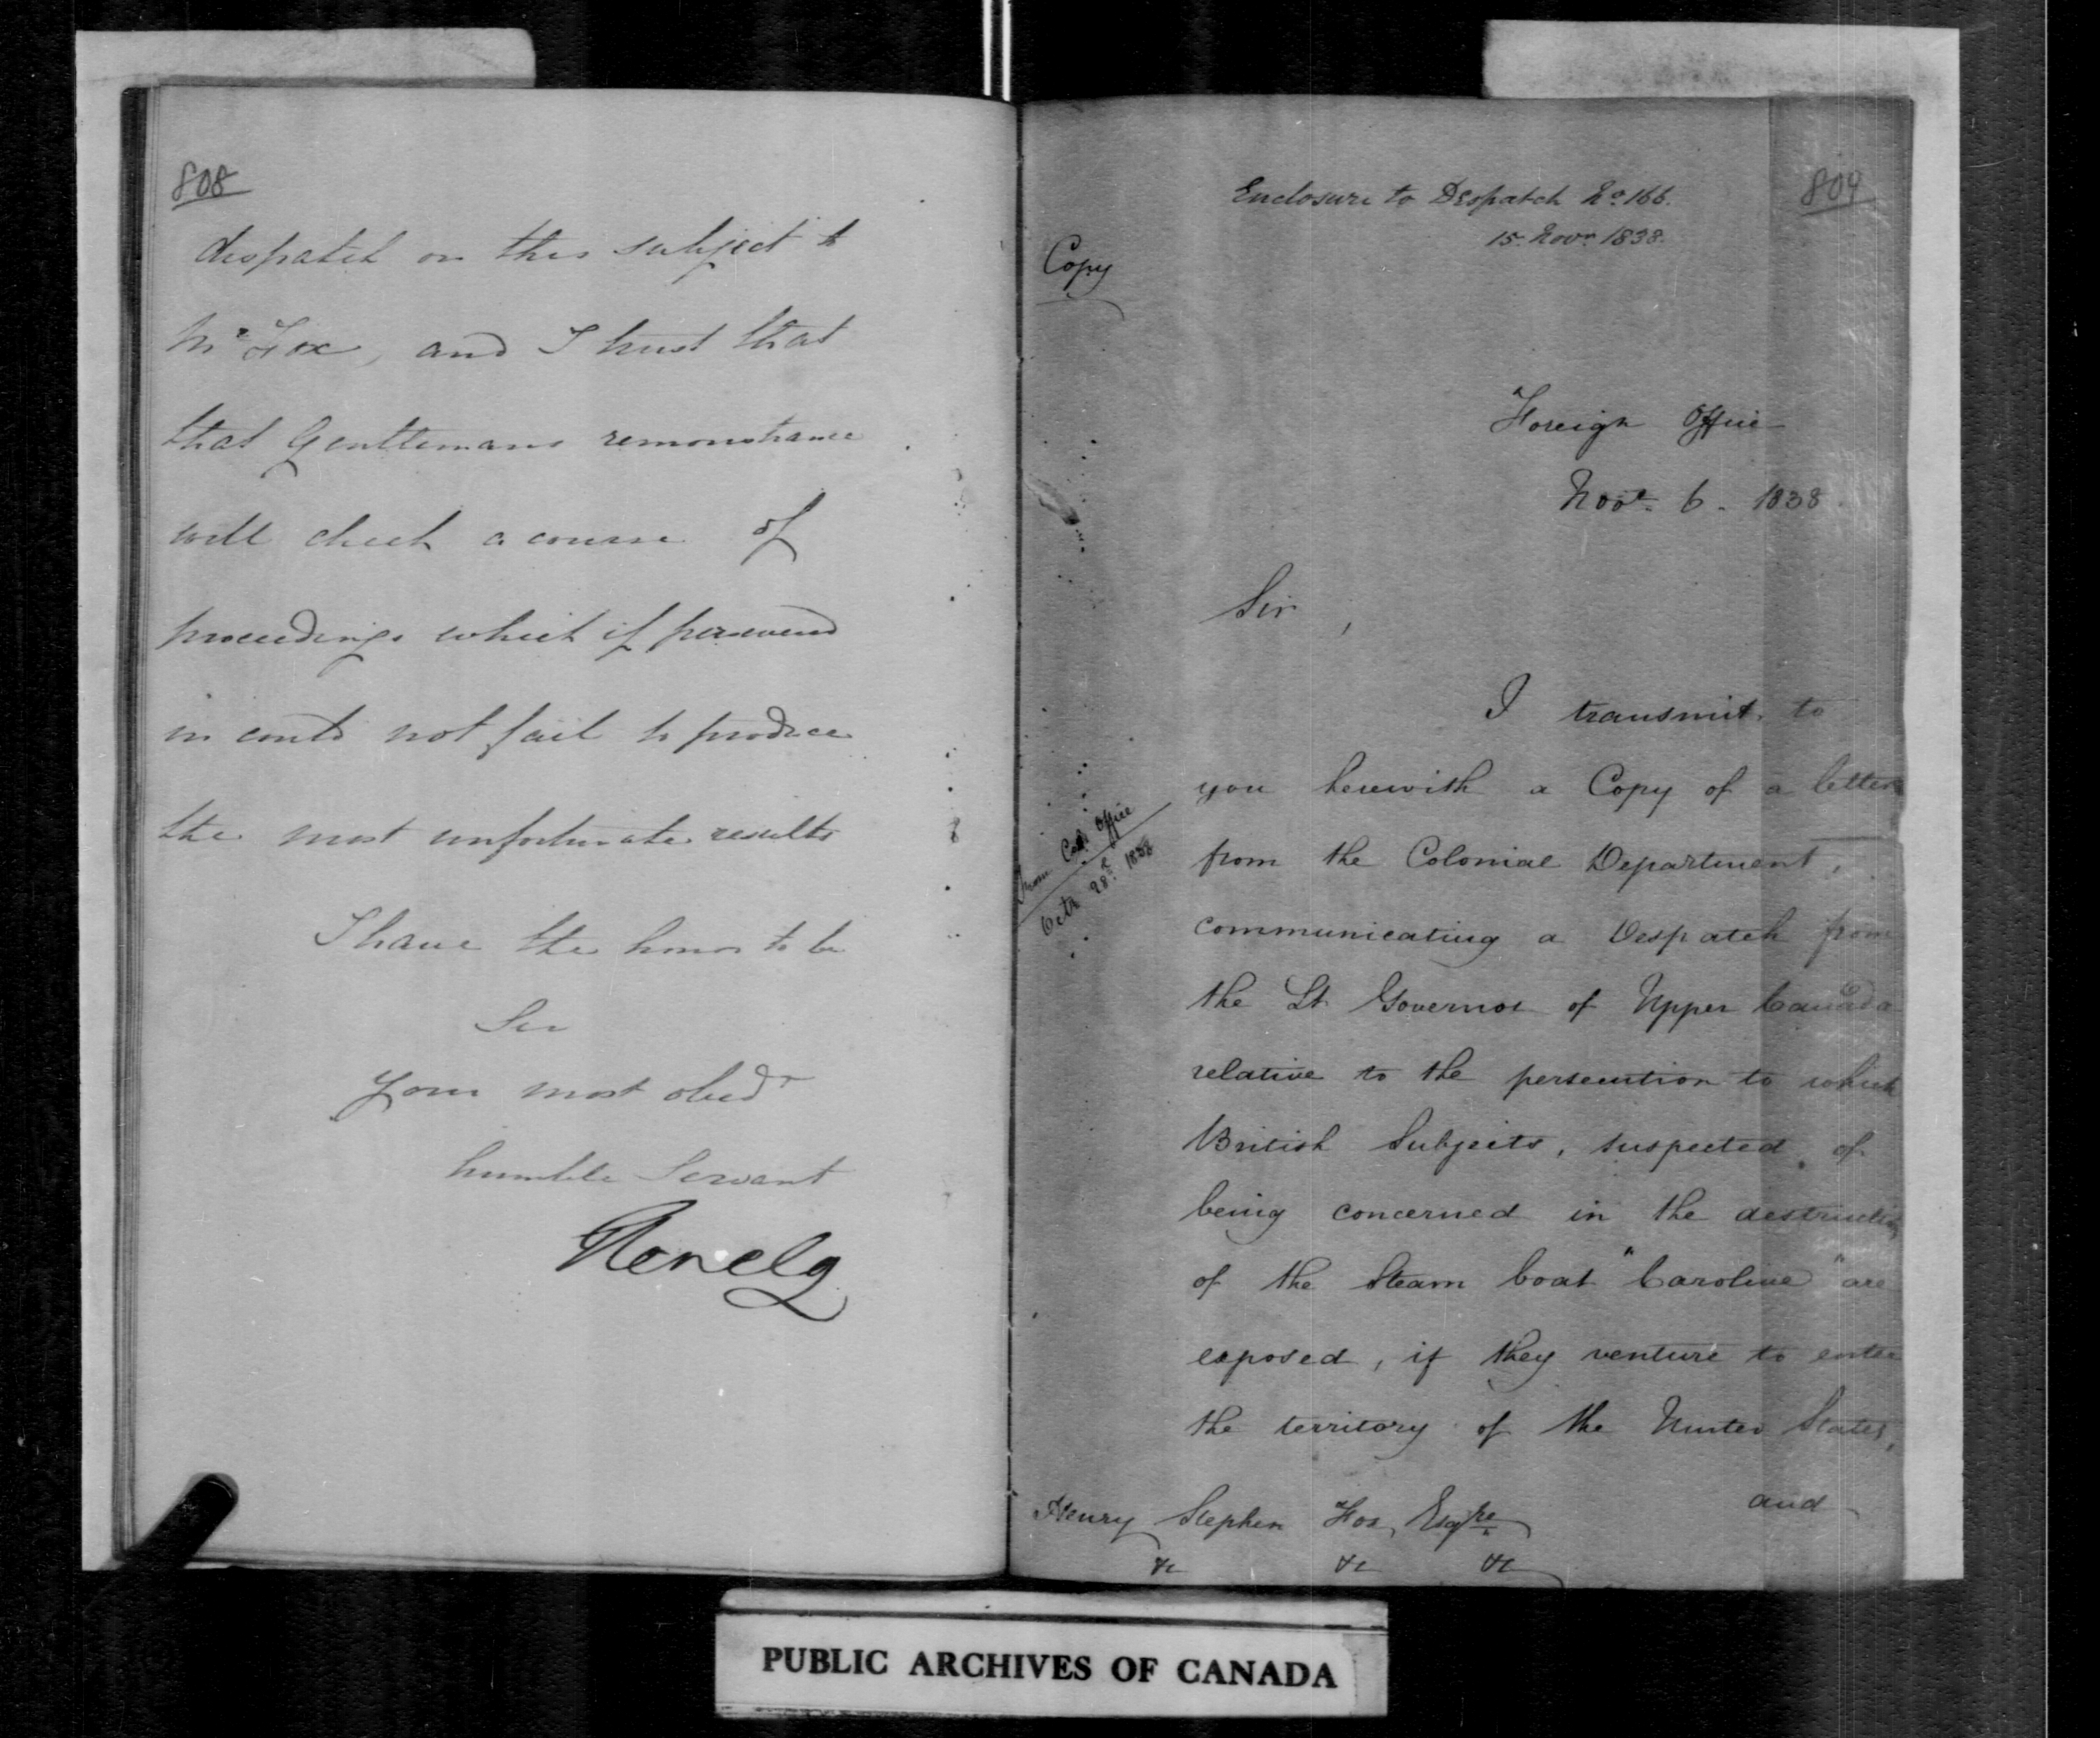 808
despatch on this subject to
Mr Fox, and I trust that
that Gentlemans remonstrance
will check a course of
proceedings which if persevered
in could not fail to produce
the most unfortunate results
I have the honor to be
Sir
Your most obedt
humble Servant
Glenelg
809
Enclosure to Despatch No. 166.
15. Novr. 1838.
Copy
Foreign Office
Novr. 6. 1838.
Sir,
I transmit to
you herewith a Copy of a letter
from the Colonial Department,
From Col. Office
Octr 28th. 1838
communicating a Despatch from
the Lt Governor of Upper Canada
relative to the persecution to which
British Subjects, suspected of
being concerned in the destruction
of the Steam boat "Caroline" are
exposed, if they venture to enter
the territory of the United States,
and
Henry Stephen Fox, Esqre.
&c &c &c
PUBLIC ARCHIVES OF CANADA